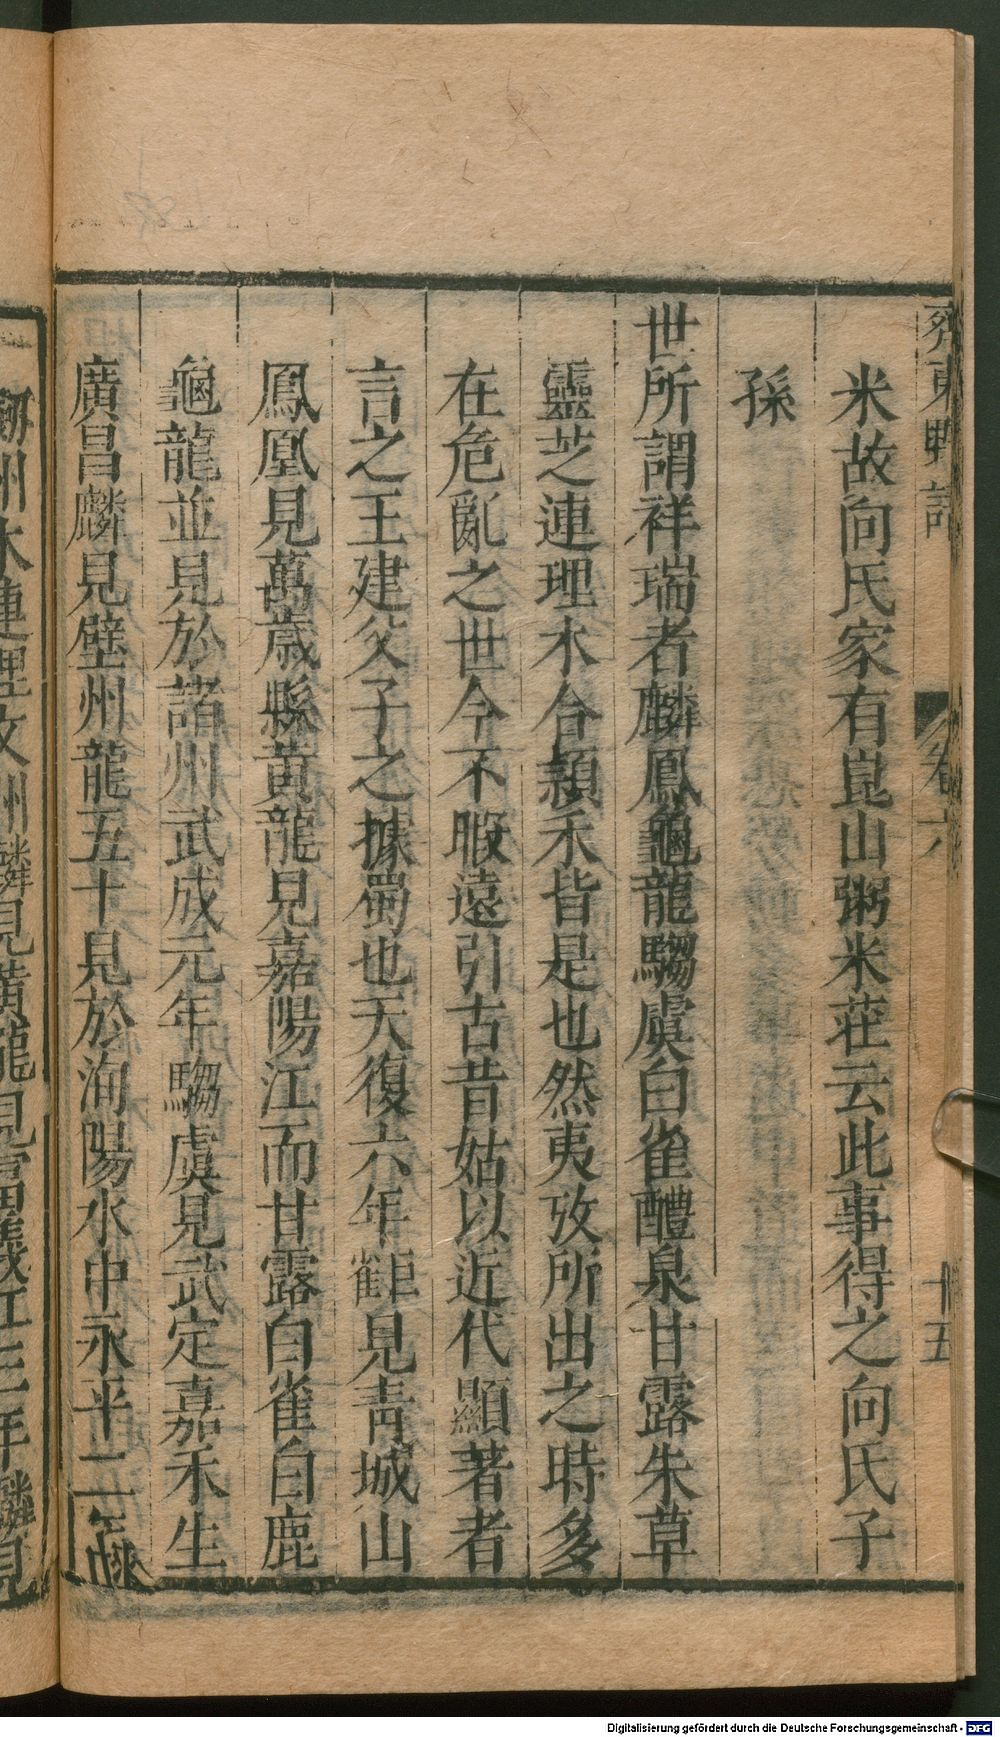 齊東野語
卷六
十五
米故向氏家有崑山粥米莊云此事得之向氏子
孫
世所謂祥瑞者麟鳳龜龍騶虞白雀醴泉甘露朱草
靈芝連理木合穎禾皆是也然夷攷所出之時多
在危亂之世今不暇遠引古昔姑以近代顯著者
言之王建父子之據蜀也天復六年䧹見青城山
鳳凰見萬歲縣黃龍見嘉陽江而甘露白雀白鹿
龜龍並見於諸州武成元年騶虞見武定嘉禾生
廣昌麟見壁州龍五十見於洵陽水中永平二年
州木連理文州麟見黃龍見富義江三年麟見
Digitalisierung gefördert durch die Deutsche Forschungsgemeinschaft - DFG